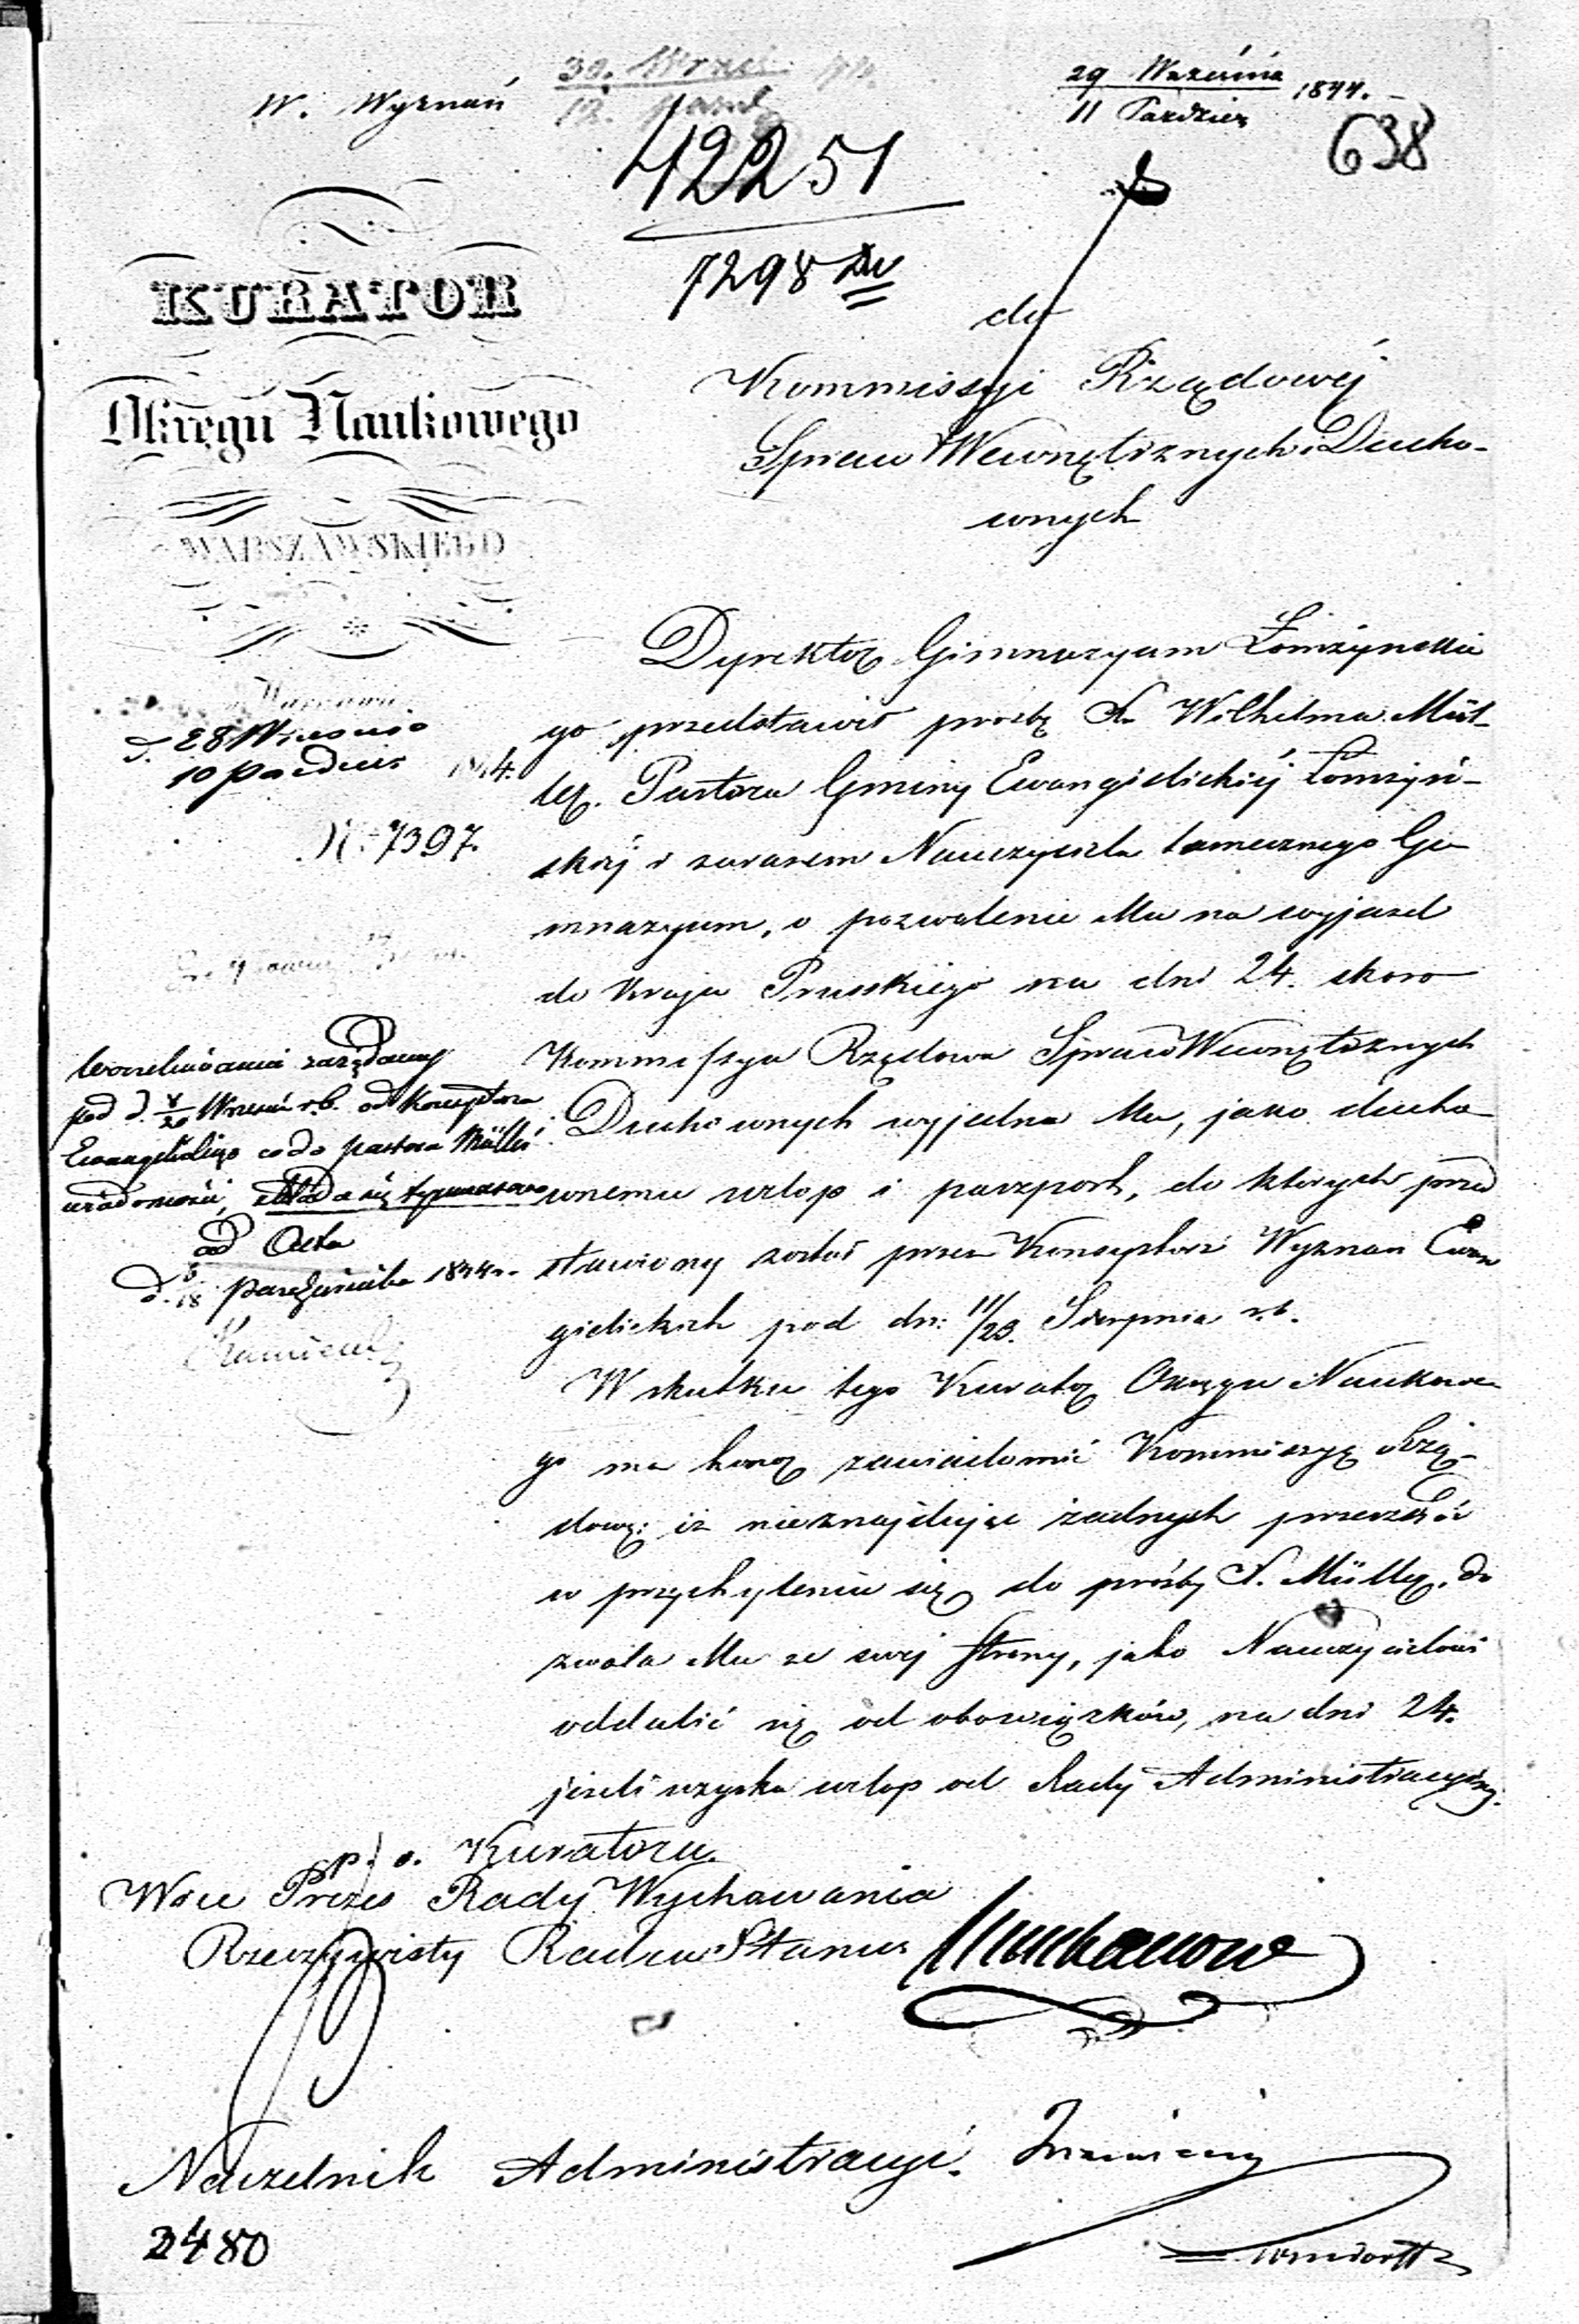 W. Wyznań
29 Września
11 Paździer 1844.
638
42251
7298
KURATOR
Okręgu Naukowego
WARSZAWSKIEGO
Warszawa
d. 28 Września
10 Paździer 1844.
N: 7397.
do
Kommissyi Rządowéj
Spraw Wewnętrznych i Ducho-
wnych
Dyrektor Gimnazyum Łomżyńskie
go przedstawił prozbę X. Wilhelma Mül-
ler. Pastora Gminy Ewangielickiéj Łomżyń-
skiéj i zarazem Nauczyciela tamecznego Gi-
mnazyum, o pozwolenie Mu na wyjazd
do Kraju Pruskiego na dni 24. skoro
Kommissya Rządowa Spraw Wewnętrznych
i Duchownych wyjedna Mu, jako ducho-
wnemu urlop i paszport, do których przed
stawiony został przez Konsystorz Wyznań Ewan
gielickich pod dn: 11/23. Sierpnia r.b.
W skutku tego Kurator Okręgu Naukowe
go ma honor zawiadomić Kommissyę Rzą-
dową: iż nieznajdując żadnych przeszkód
w przychyleniu się do prośby X. Müller, do
zwala Mu ze swéj strony, jako Nauczycielowi
oddalić się od obowiązków, na dni 24.
jeżeli uzyska urlop od Rady Administracyjnéj.
zażądanej
pod d. 8/20 Wrześn r.b. od Konsystorza
Ewangelickiego co do pastora Müller
wiadomości, składa się tymczasowo
ad Acta
d. 6/18 Października 1844 r.
p. o. Kuratora
Wice Prezes Rady Wychowania
Rzeczywisty Radca Stanu Muchanow
Naczelnik Administracyi.
2480